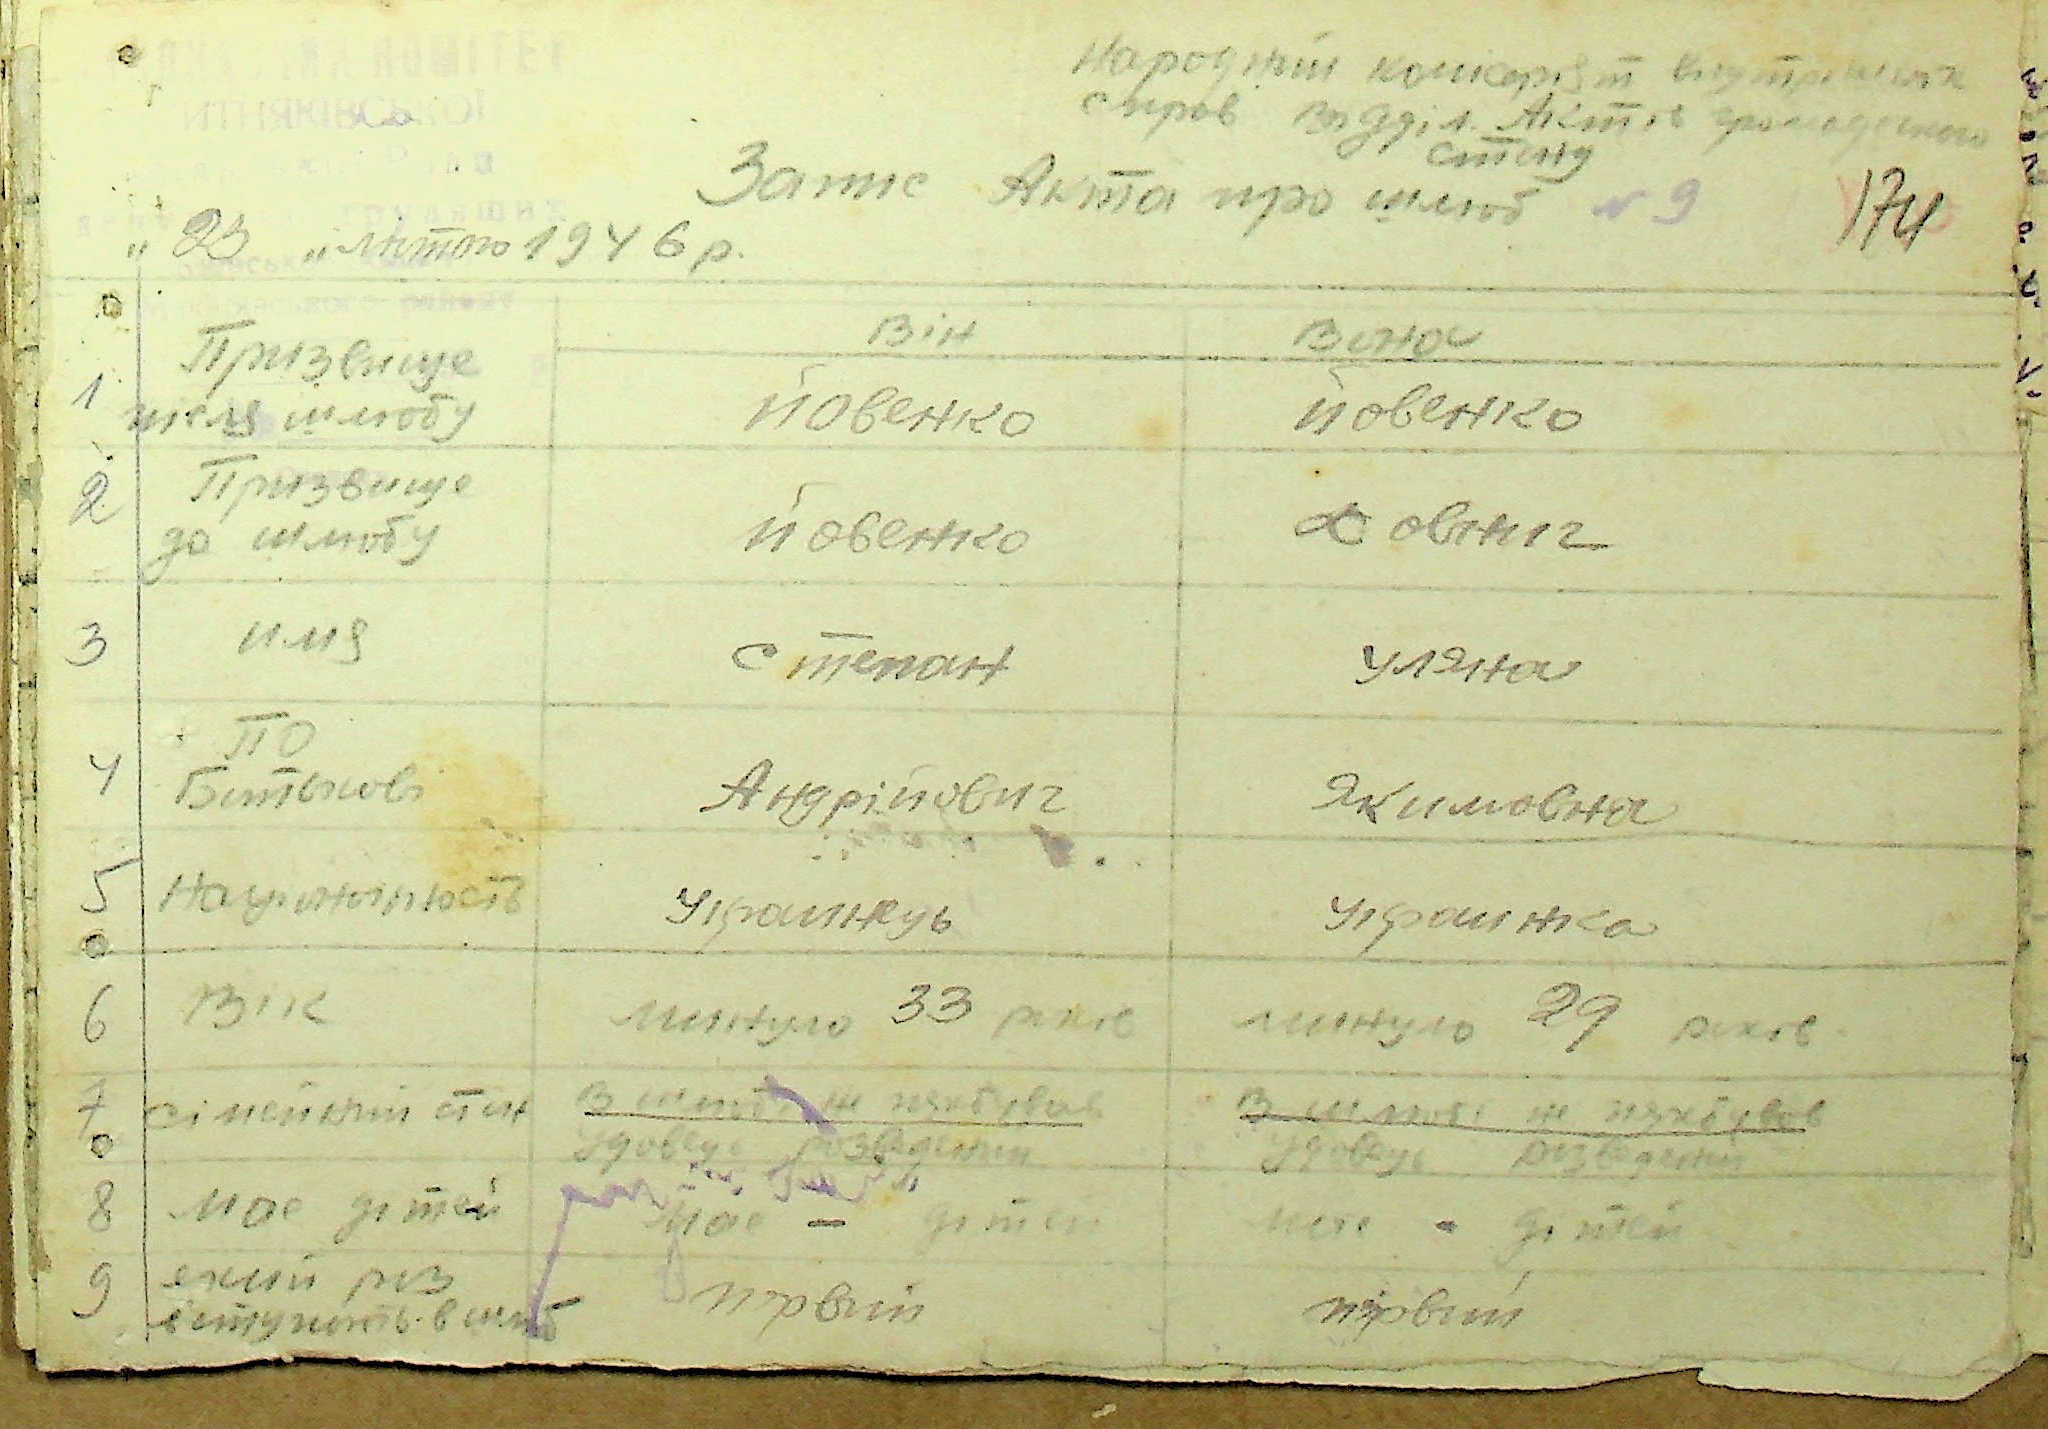 Народний комісаріят внутришніх
справ Відділ Актів громадського
стану
Запис Акта про шлюб № 9
174
" 23 " лютого 1946 р.
Він Вона
1 Призвище після шлюбу Йовенко Йовенко
2 Призвище до шлюбу Йовенко
3 имя Степан Уляна
4 По Батькові Андрійович Якимовна
5 Національность Украинець Украинка
6 Вік минуло 33 років минуло 29 років
7 сімейний стан В шлюбі не перебував В шлюбі не перебував
удовець розведений удовець розведений
8 Має дітей Має - дітей має - дітей
9 який раз вступають в шлюб первий первий